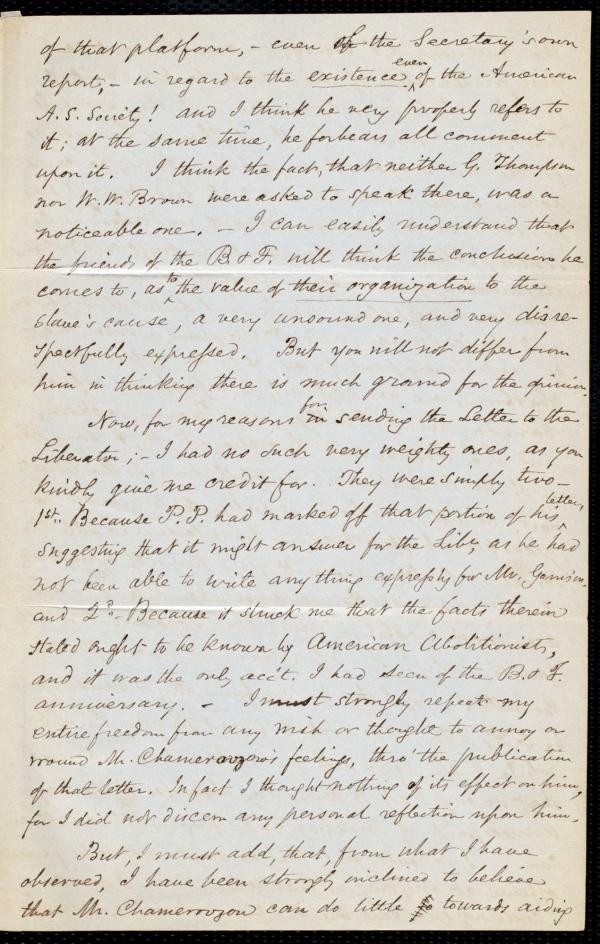 of that platform, - even of the Secretary's own
report, - in regard to the existence even of the American
A. S. Society! and I think he very properly refers to
it; at the same time, he forbears all comment
upon it. I think the fact, that neither G. Thompson
nor W. W. Brown were asked to speak there, was a
noticeable one. - I can easily understand that
the friends of the B & F. will think the conclusion he
comes to, as to the value of their organization to the
Slave's cause, a very unsound one, and very disre-
spectfully expressed. But you will not differ from
him in thinking there is much ground for the opinion.
Now, for my reasons for in sending the Letter to the
Liberator; - I had no such very weighty ones, as you
kindly give me credit for. They were simply two -
1st. Because P. P. had marked off that portion of his letter,
suggesting that it might answer for the Libr, as he had
not been able to write any thing expressly for Mr. Garrison.
and 2d. Because it struck me that the facts therein
stated ought to be known by American Abolitionists,
and it was the only acc't. I had seen of the B. & F.
anniversary. - I must strongly repeat my
entire freedom from any wish or thought to annoy or
wound Mr. Chamerovzow's feelings, thro' the publication
of that letter. In fact I thought nothing of its effect on him,
for I did not discern any personal reflection upon him.
But, I must add, that, from what I have
observed, I have been strongly inclined to believe
that Mr. Chamerovzow can do little to towards aiding